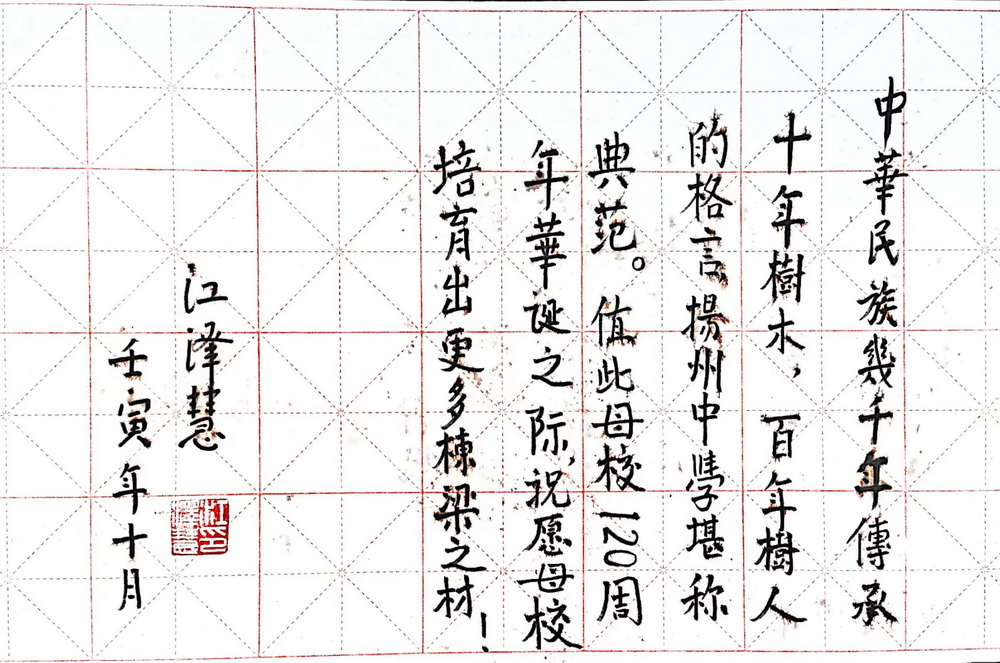 中華民族幾千年傳承
十年樹木，百年樹人
的格言，揚州中學堪称
典范。值此母校120周
年華诞之际，祝愿母校
培育出更多棟梁之材！
江泽慧
壬寅年十月
江泽慧印